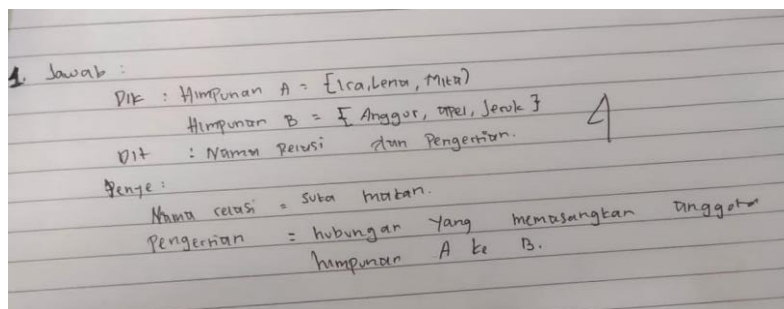 1. Jawab :
Dik : Himpunan A = {Ica, Lena, Mita)
Himpunan B = { Anggur, apel, Jeruk }
4
Dit : Nama Relasi dan Pengertian.
Penye :
Nama relasi = suka makan.
Pengertian = hubungan yang memasangkan anggota
himpunan A ke B.